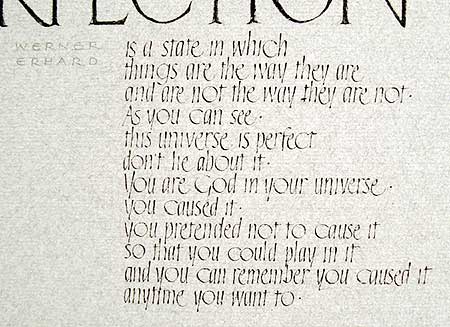 RFECTION
WERNER
ERHARD
is a state in which
things are the way they are
and are not the way they are not.
As you can see.
this universe is perfect
don't lie about it.
You are God in your universe.
You caused it.
you pretended not to cause it
so that you could play in it
and you can remember you caused it
anytime you want to.